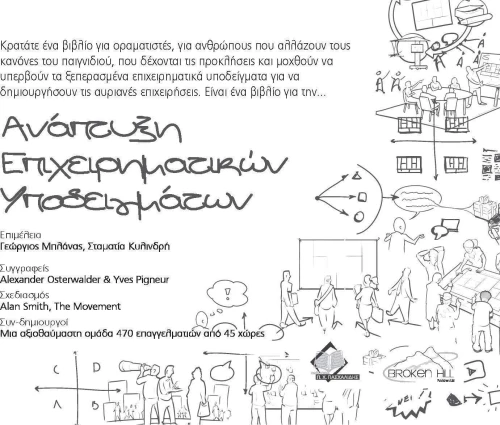 Κρατάτε ένα βιβλίο για οραματιστές, για ανθρώπους που αλλάζουν τους
κανόνες του παιγνιδιού, που δέχονται τις προκλήσεις και μοχθούν να
υπερβούν τα ξεπερασμένα επιχειρηματικά υποδείγματα για να
δημιουργήσουν τις αυριανές επιχειρήσεις. Είναι ένα βιβλίο για την...
Ανάπτυξη
Επιχειρηματικών
Υποδειγμάτων
Επιμέλεια
Γεώργιος Μπλάνας, Σταματία Κυλινδρή
Συγγραφείς
Alexander Osterwalder & Yves Pigneur
Σχεδιασμός
Alan Smith, The Movement
Συν-δημιουργοί
Μια αξιοθαύμαστη ομάδα 470 επαγγελματιών από 45 χώρες
C D
A B
Π.Χ. ΠΑΣΧΑΛΙΔΗΣ
BROKEN HILL